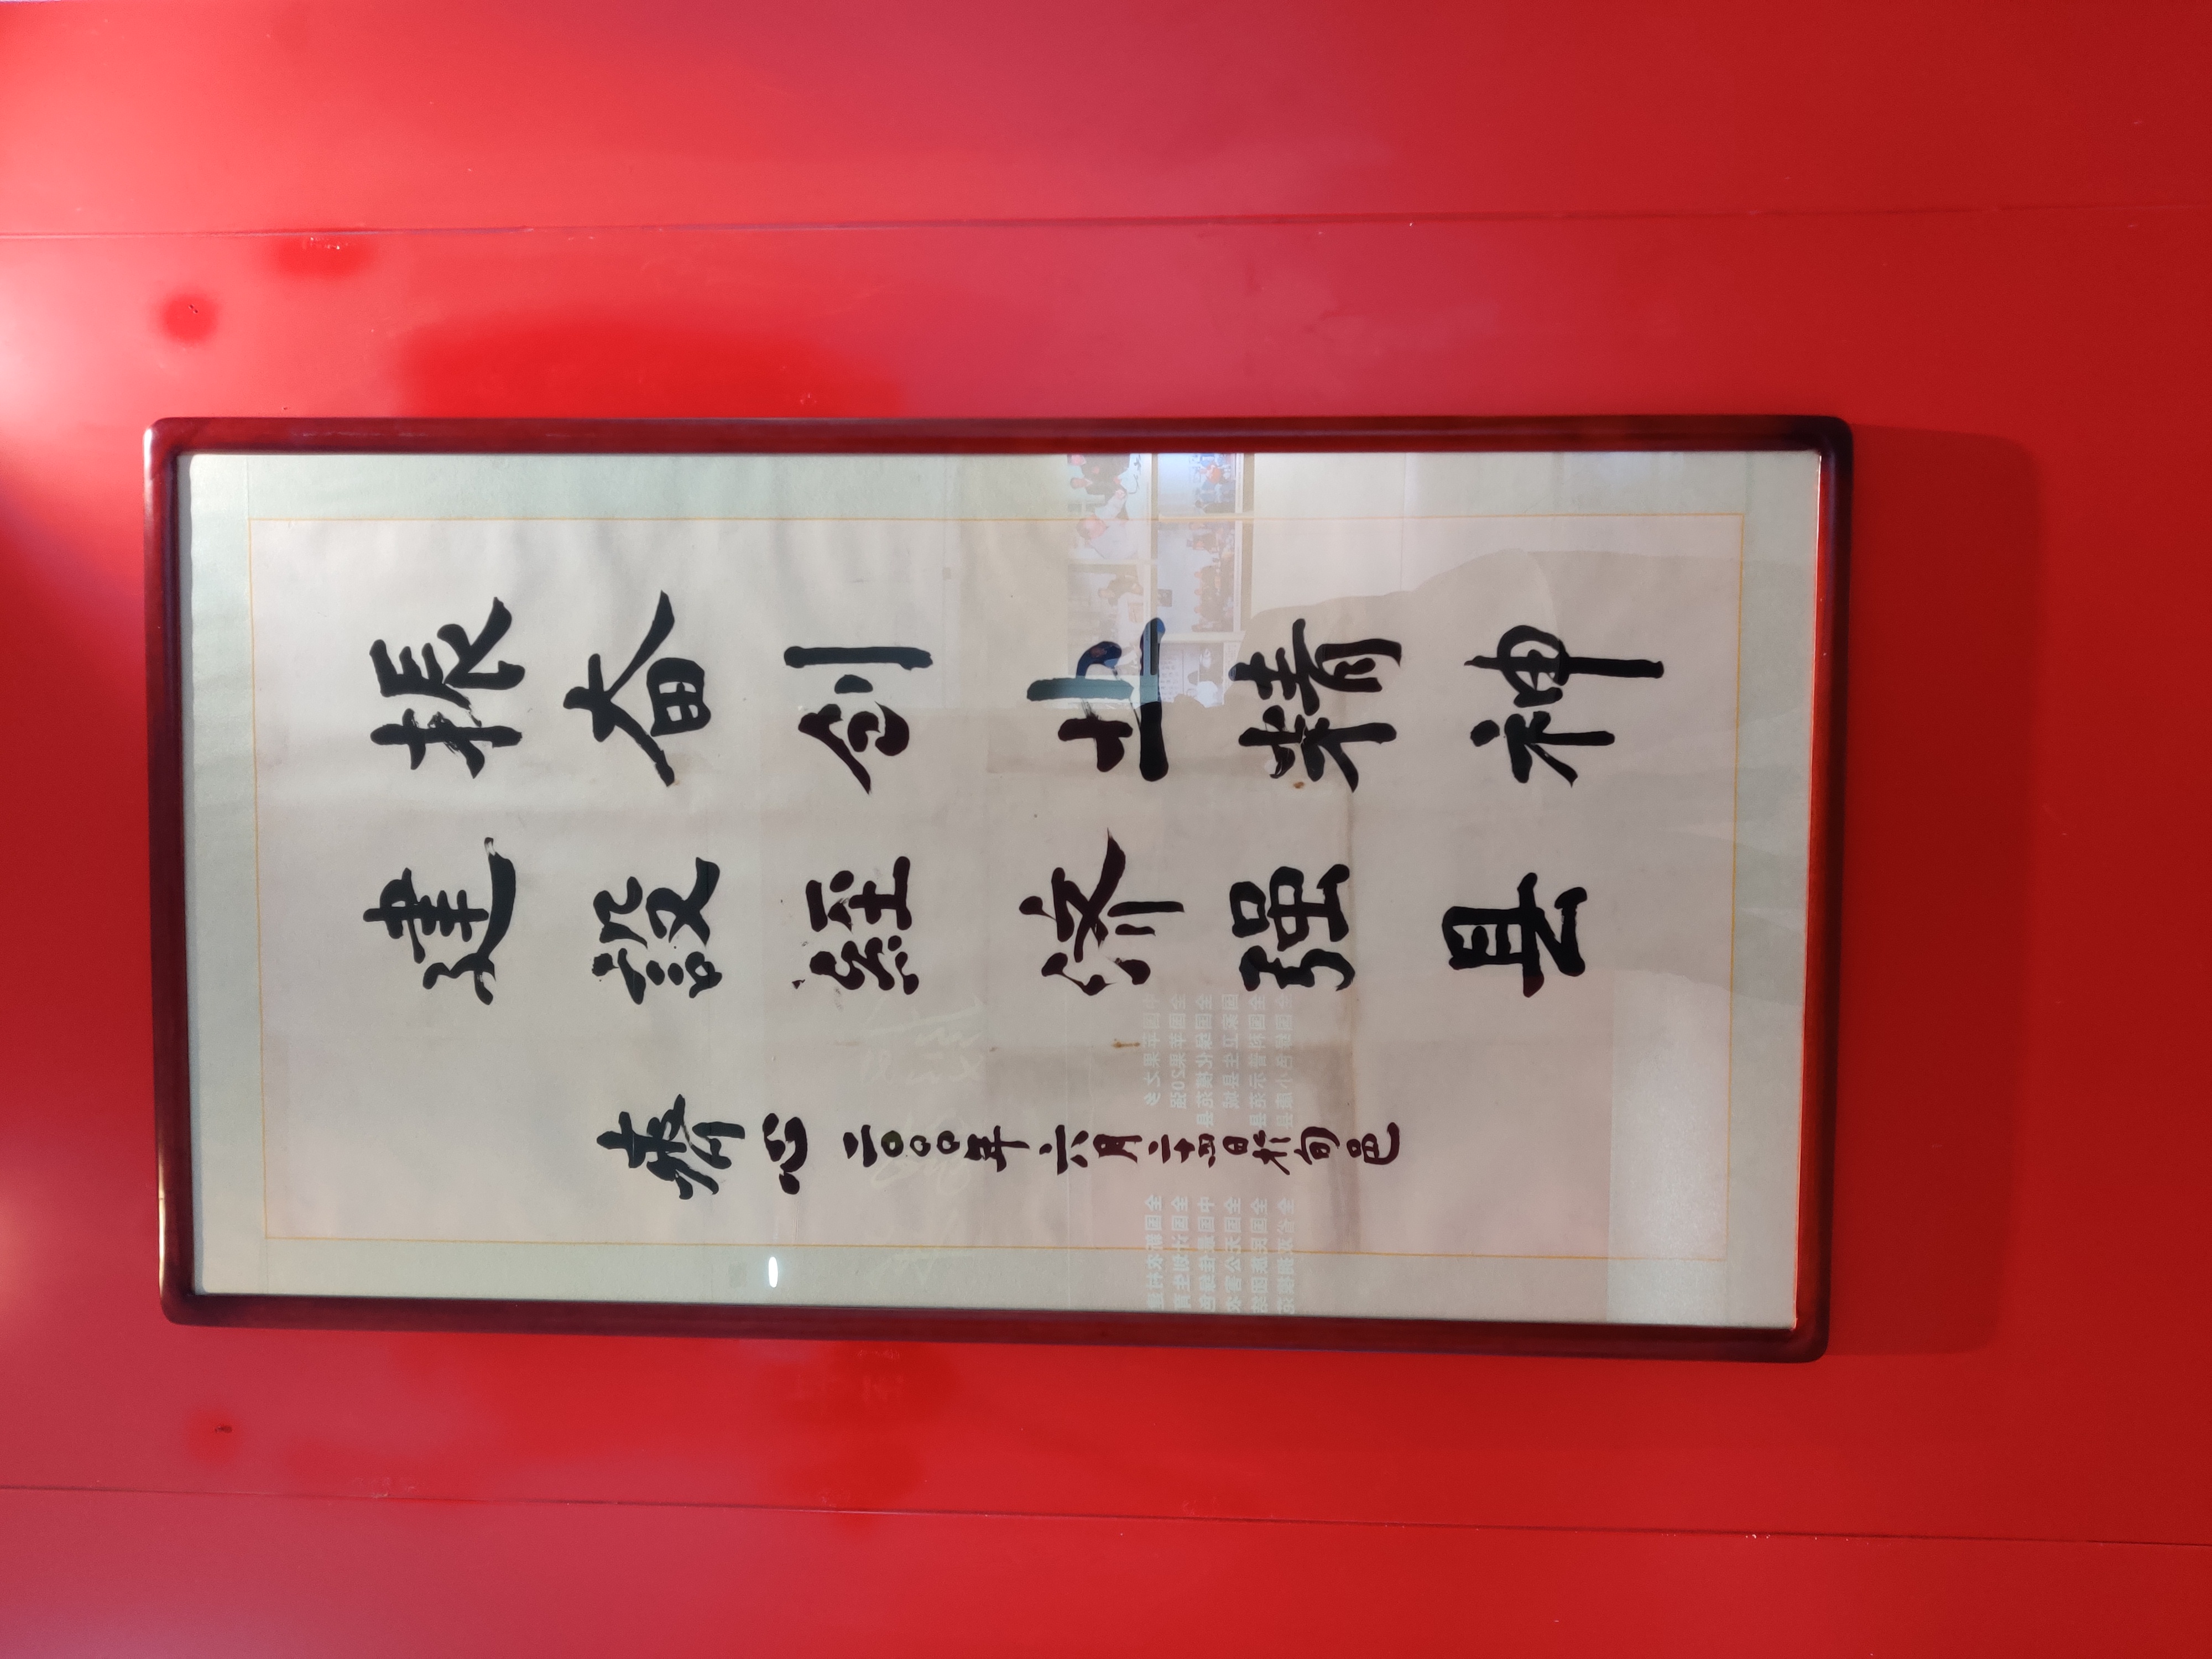 振奋创业精神
建設経济强县
齊心 二〇〇〇年六月二十四日於旬邑